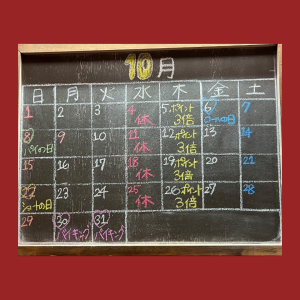 10月
日 月 火 水 木 金 土
1 2 3 4 5 ポイント 6 7
休 3倍 コールの日
8 9 10 11 12 ポイント 13 14
パイの日 休 3倍
15 16 17 18 19 ポイント 20 21
休 3倍
22 23 24 25 26 ポイント 27 28
休 3倍
29 30 31
バイキング バイキング